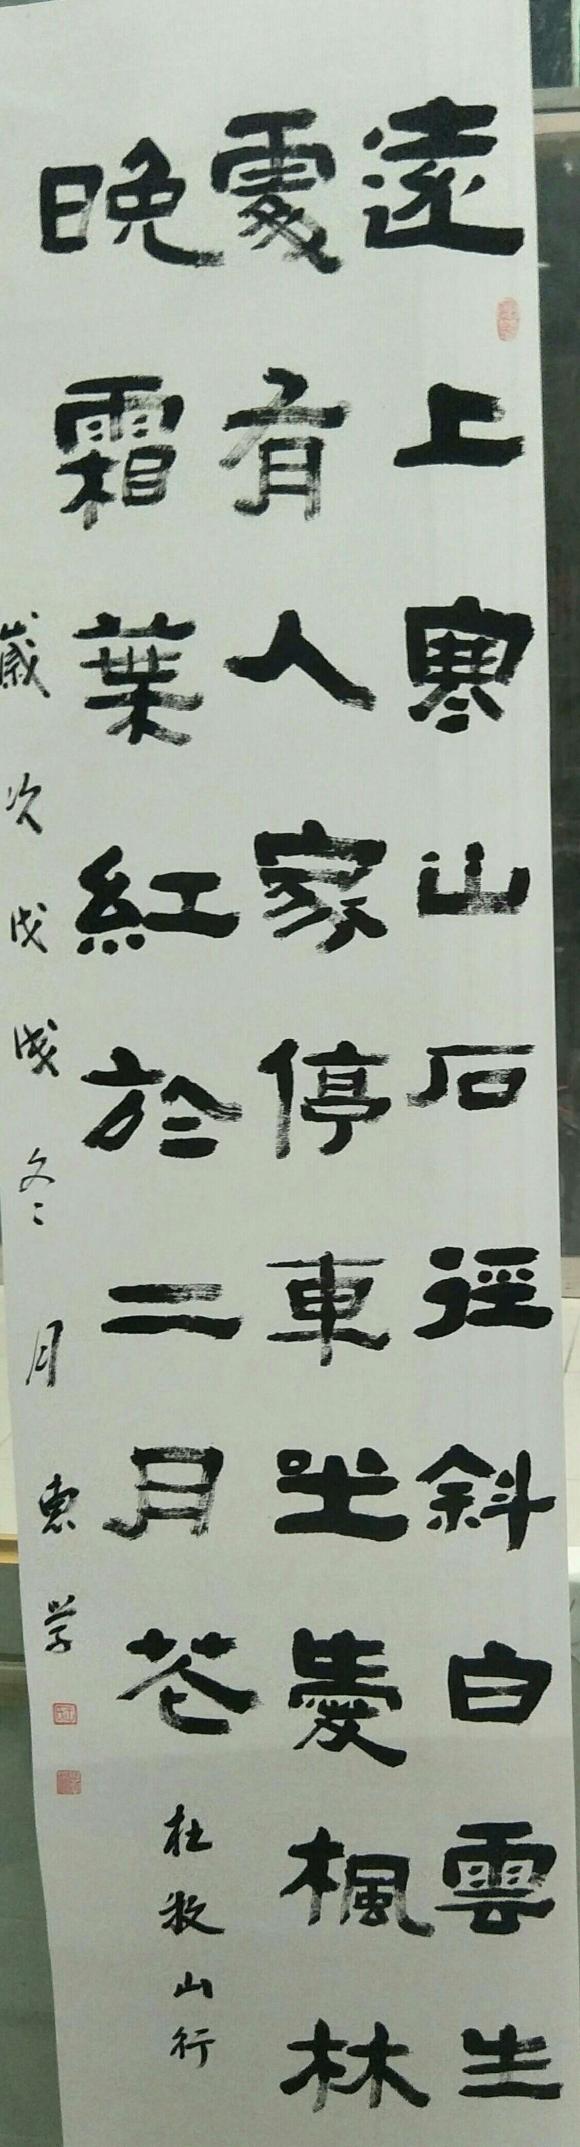 遠上寒山石徑斜白雲生
處有人家停車坐愛楓林
晚霜葉紅於二月花
杜牧山行
歲次戊戌冬月惠学